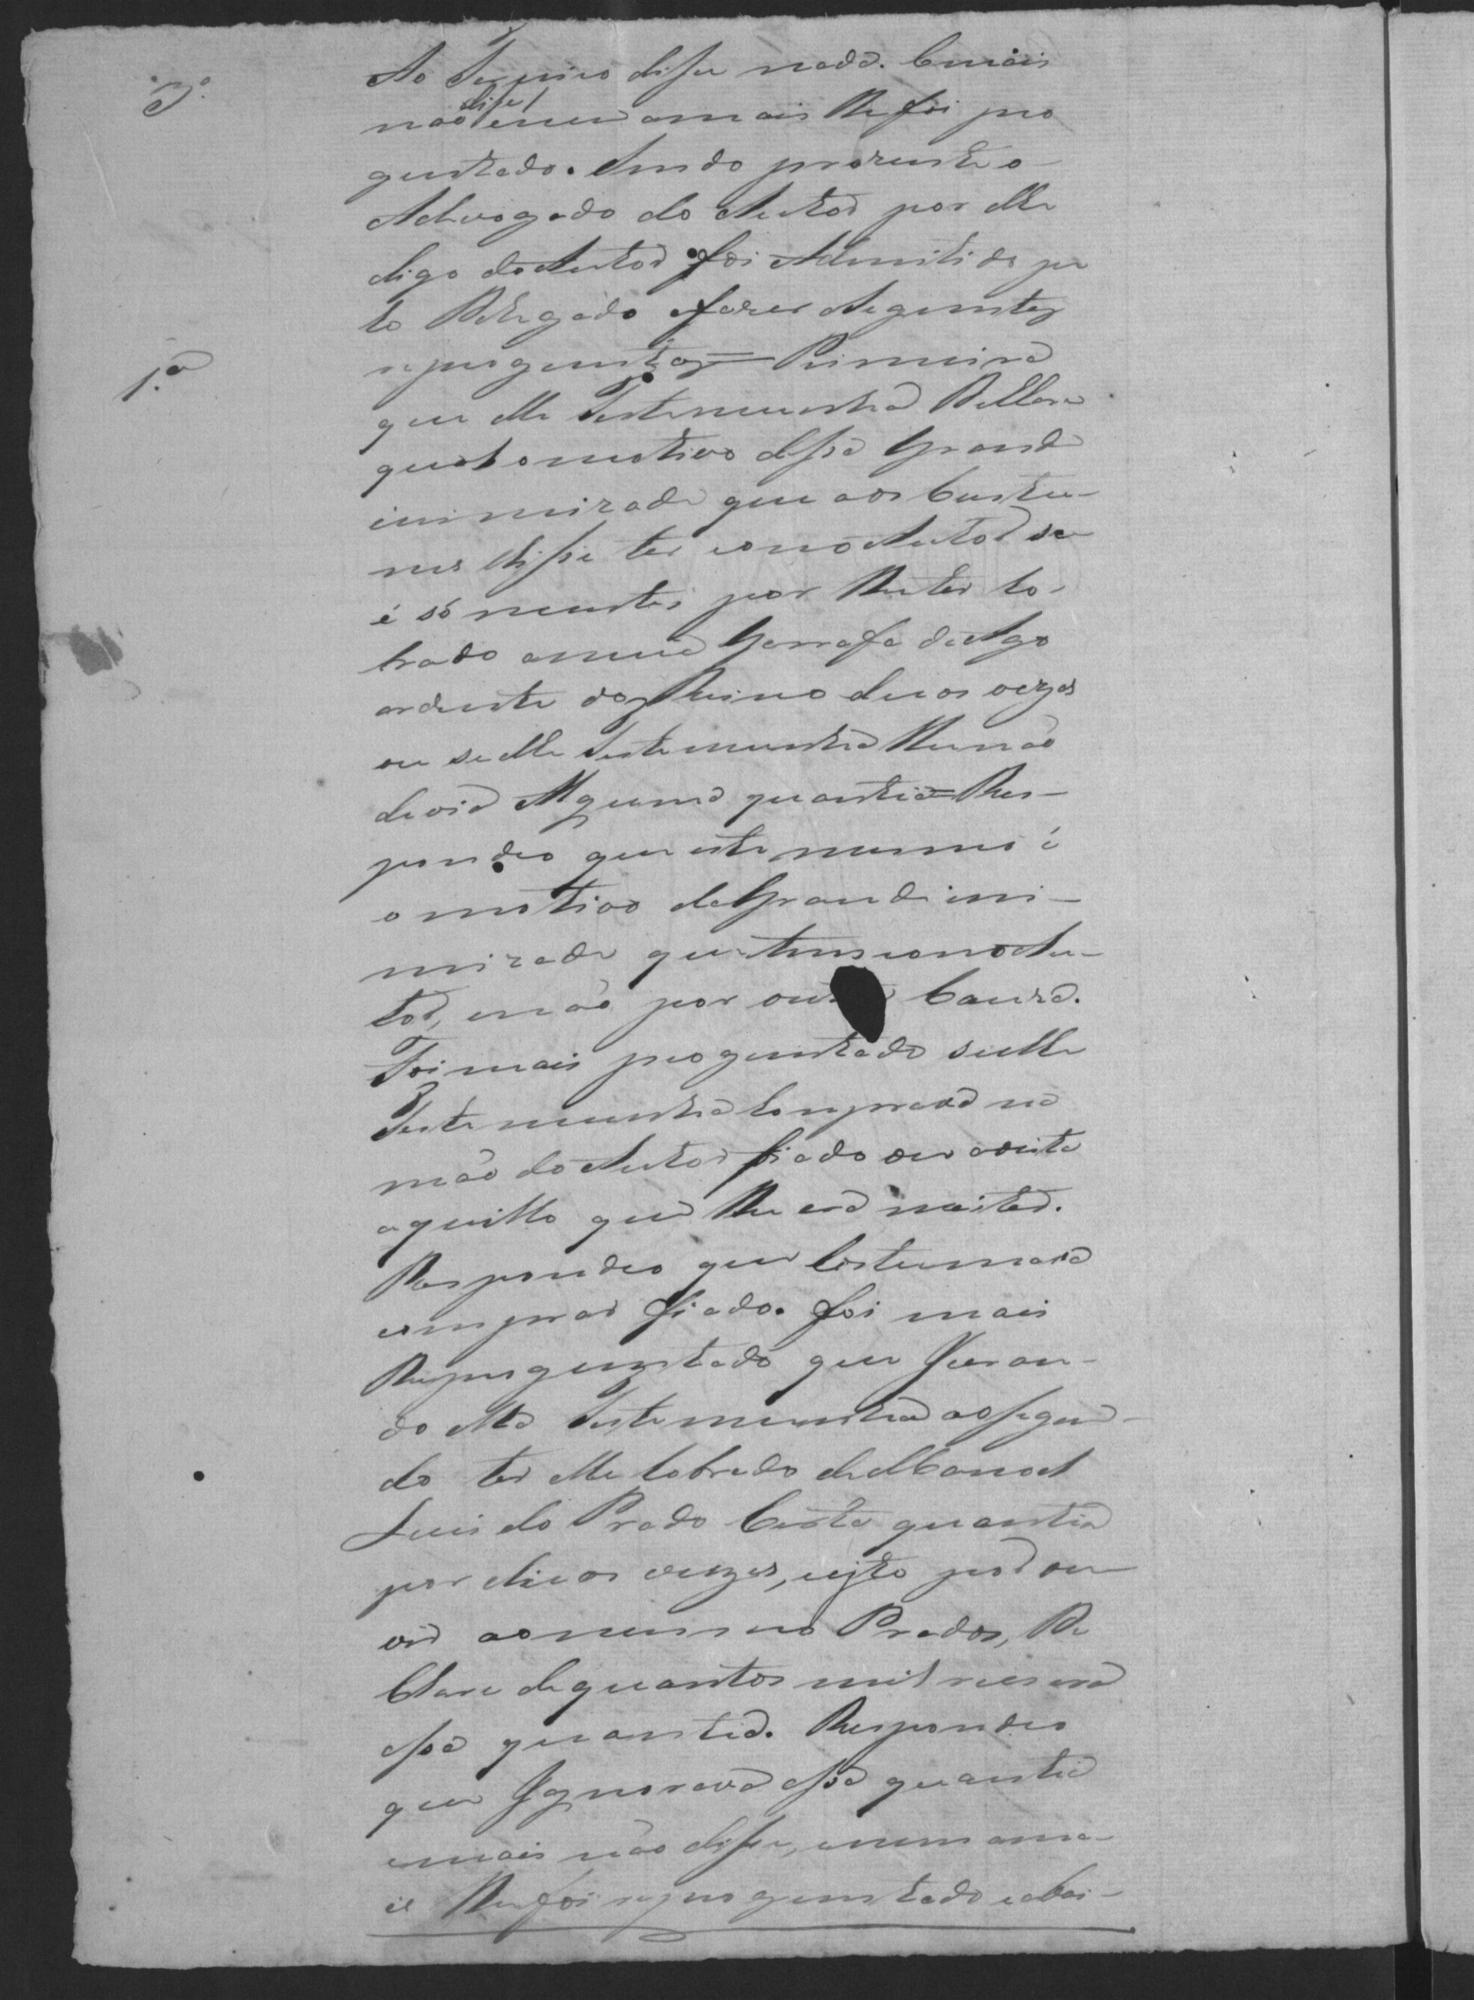 3º
Ao Terceiro disse nada. Emais
não disse enem amais lhe foi pro
guntado. Sendo prezente o
Advogado do Autor por elle
digo do Autor foi Admitido pe
lo Delegado fazer Aseguintes
reproguntas = Primeira
1.ª
que elle Testemunha Declare
qual o motivo dessa Grande
inimizade que aos Custu-
mes disse ter com o Autor se
é sómente por lhe ter co-
brado auma Garrafa de Ago
ardente do Reino duas vezes
ou se elle Testemunha lhe não
devia Alguma quantia = Res-
pondeo que este mesmo é
o motivo da Grande ini-
mizade que tem com o Au-
tor, enão por outra Cauza.
Foi mais proguntado se elle
Testemunha comprava na
mão do Autor fiado ou avista
aquillo que lhe era mister.
Respondeo que Costumava
comprar fiado. foi mais
Reproguntado que Juran-
do elle Testemunha ao segun-
do ter elle cobrado de Manoel
Luis do Prado Certa quantia
por duas vezes, eisto por ou-
vir ao mesmo Prados, De
Clare de quantos mil reis era
essa quantia. Respondeo
que Ignorava essa quantia
emais não disse, enem ama-
is lhe foi reproguntado eabai-